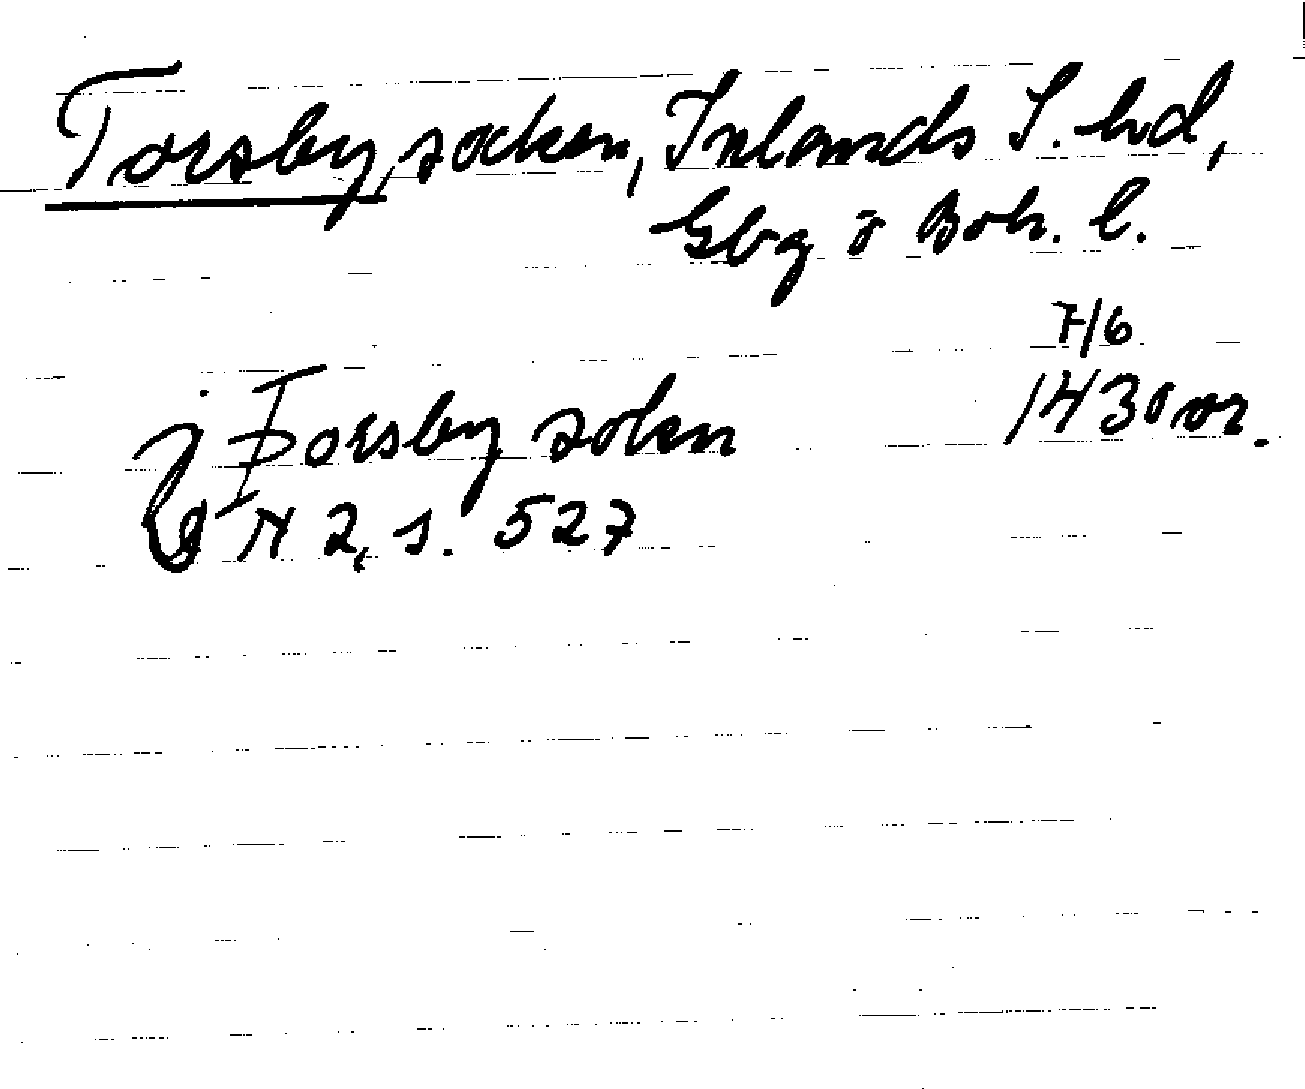 Torsby, socken, Inlands S. hd,
Gbg o Boh. l.
7/6
1430 or.
j Þorsby sokn
N 2, s. 527